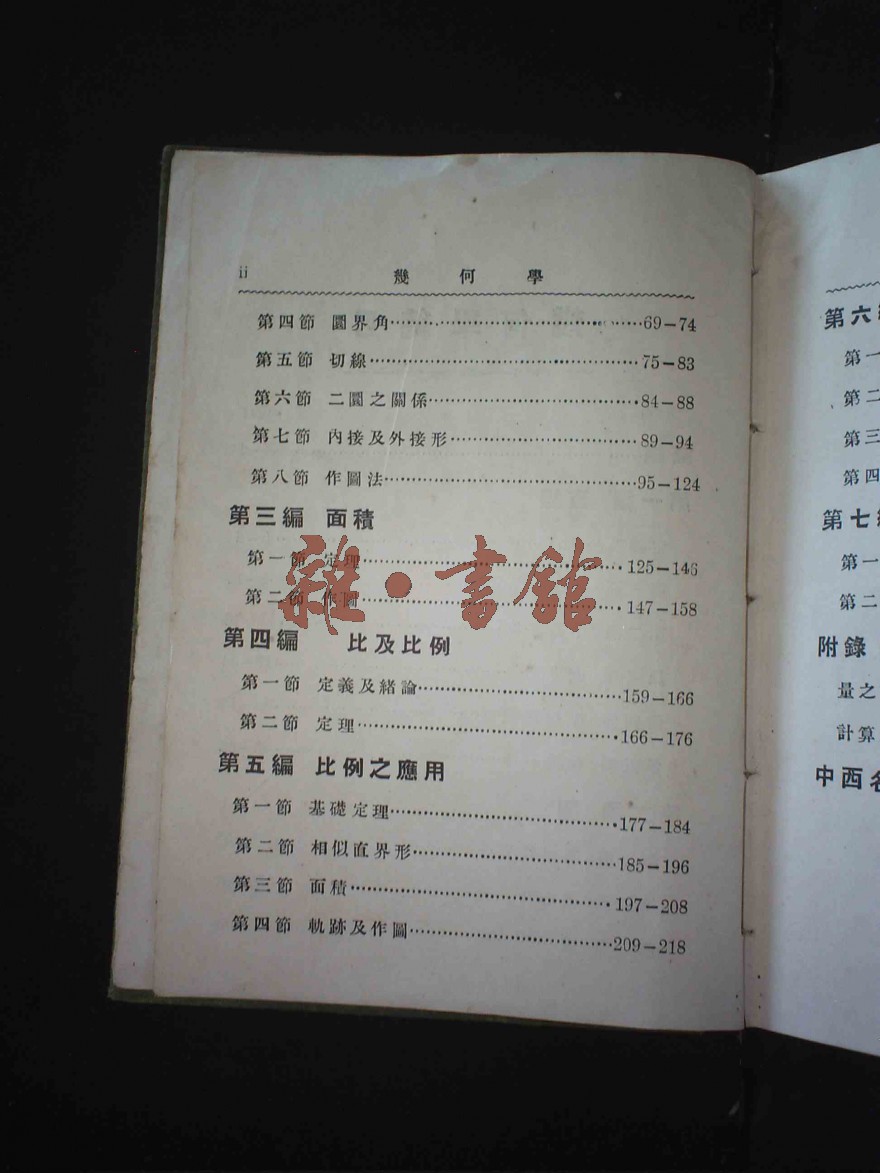 ii 幾何學
第四節 圜界角……69—74
第五節 切線……75—83
第六節 二圜之關係……84—88
第七節 內接及外接形……89—94
第八節 作圖法……95—124
第三編 面積
第一節 定理……125—146
第二節 作圖……147—158
第四編 比及比例
第一節 定義及緒論……159—166
第二節 定理……166—176
第五編 比例之應用
第一節 基礎定理……177—184
第二節 相似直界形……185—196
第三節 面積……197—208
第四節 軌跡及作圖……209—218
雜·書館
第六
第一
第二
第三
第四
第七
第一
第二
附錄
量之
計算
中西名